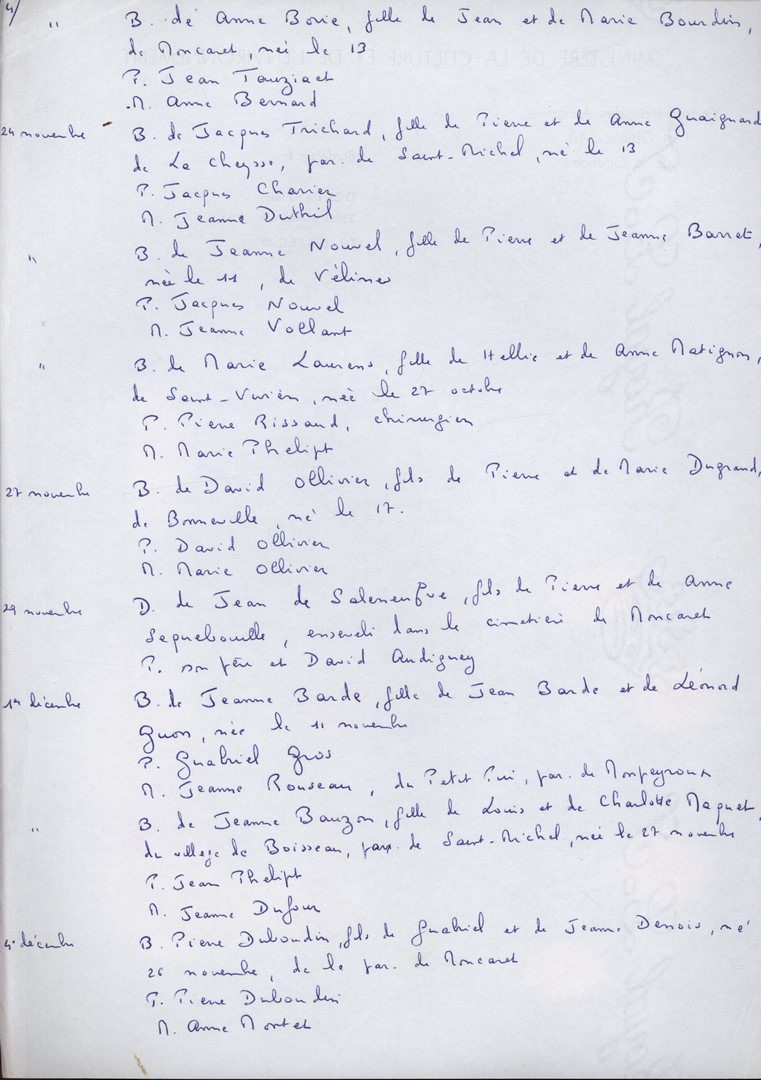 4/
" B. de Anne Borie, fille de Jean et de Marie Bourdin,
de Moncaret, née le 13
P. Jean Tauziact
M. Anne Bernard
24 novembre B. de Jacques Trichard, fille de Pierre et de Anne Guaignard
de La Cheysse, par. de Saint-Michel, né le 13
P. Jacques Charier
M. Jeanne Duthil
" B. de Jeanne Nouvel, fille de Pierre et de Jeanne Barret,
née le 11, de Vélines
P. Jacques Nouvel
M. Jeanne Vollant
" B. de Marie Laurens, fille de Hellie et de Anne Matignon,
de Saint-Vivien, née le 27 octobre
P. Pierre Rissaud, chirurgien
M. Marie Phelipt
27 novembre B. de David Ollivier, fils de Pierre et de Marie Dugrand,
de Bonneville, né le 17.
P. David Ollivier
M. Marie Ollivier
29 novembre D. de Jean de Saleneufve, fils de Pierre et de Anne
Seguebouille, enseveli dans le cimetière de Moncaret
P. son père et David Audiguey
1er décembre B. de Jeanne Barde, fille de Jean Barde et de Léonord
Guon, née le 11 novembre
P. Guabriel Gros
M. Jeanne Rouseau, du Petit Pui, par. de Monpeyroux
" B. de Jeanne Bauzon, fille de Louis et de Charlotte Maguet,
du village de Boisseau, par. de Saint-Michel, née le 27 novembre
P. Jean Phelipt
M. Jeanne Dufour
4 décembre B. Pierre Duboudin, fils de Guabriel et de Jeanne Denois, né
26 novembre, de la par. de Moncaret
P. Pierre Duboudin
M. Anne Montet